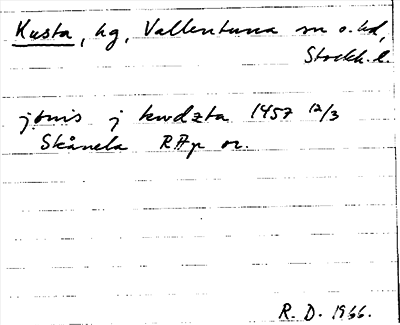 Kusta, hg, Vallentuna sn o. hd,
Stockh. l.
jönis j kwdzta 1457 12/3
Skånela RAp or.
R. D. 1966.